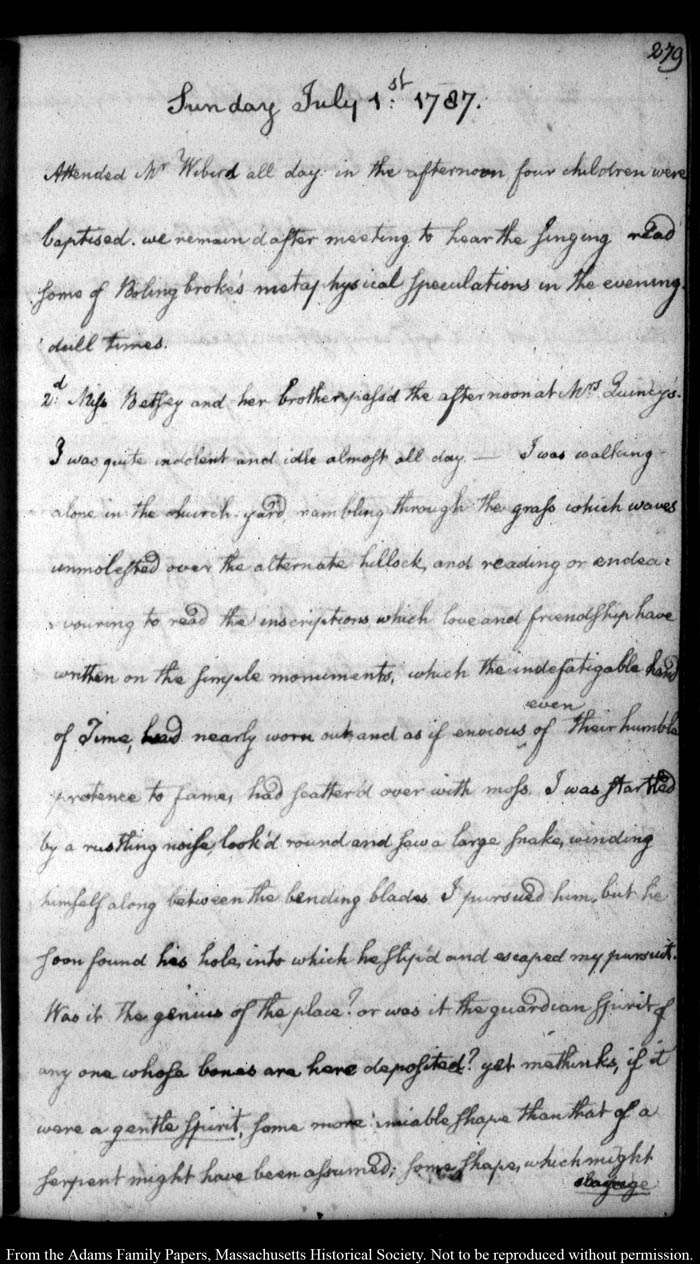 279
Sunday July 1.st 1787.
Attended Mr Wibird all day. in the afternoon four children were
baptised. we remain'd after meeting to hear the singing read
some of Bolingbroke's metaphysical speculations in the evening.
dull times.
2.d Miss Betsey and her brother pass'd the afternoon at Mrs Quincy's.
I was quite indolent and idle almost all day — I was walking
alone in the church-yard, rambling through the grass which waves
unmolested over the alternate hillock, and reading or endea:
:vouring to read the inscriptions, which love and friendship have
written on the simple monuments, which the indefatigable hand
even
of Time, had nearly worn out, and as if envious of their humble
pretence to fame, had scatter'd over with moss. I was startled
by a rustling noise, look'd round and saw a large snake, winding
himself along between the bending blades. I pursued him, but he
soon found his hole, into which he slip'd and escaped my pursuit.
Was it the genius of the place? or was it the guardian spirit of
any one whose bones are here deposited? yet methinks, if it
were a gentle spirit, some more amiable shape than that of a
serpent might have been assumed; some shape, which might
From the Adams Family Papers, Massachusetts Historical Society. Not to be reproduced without permission.